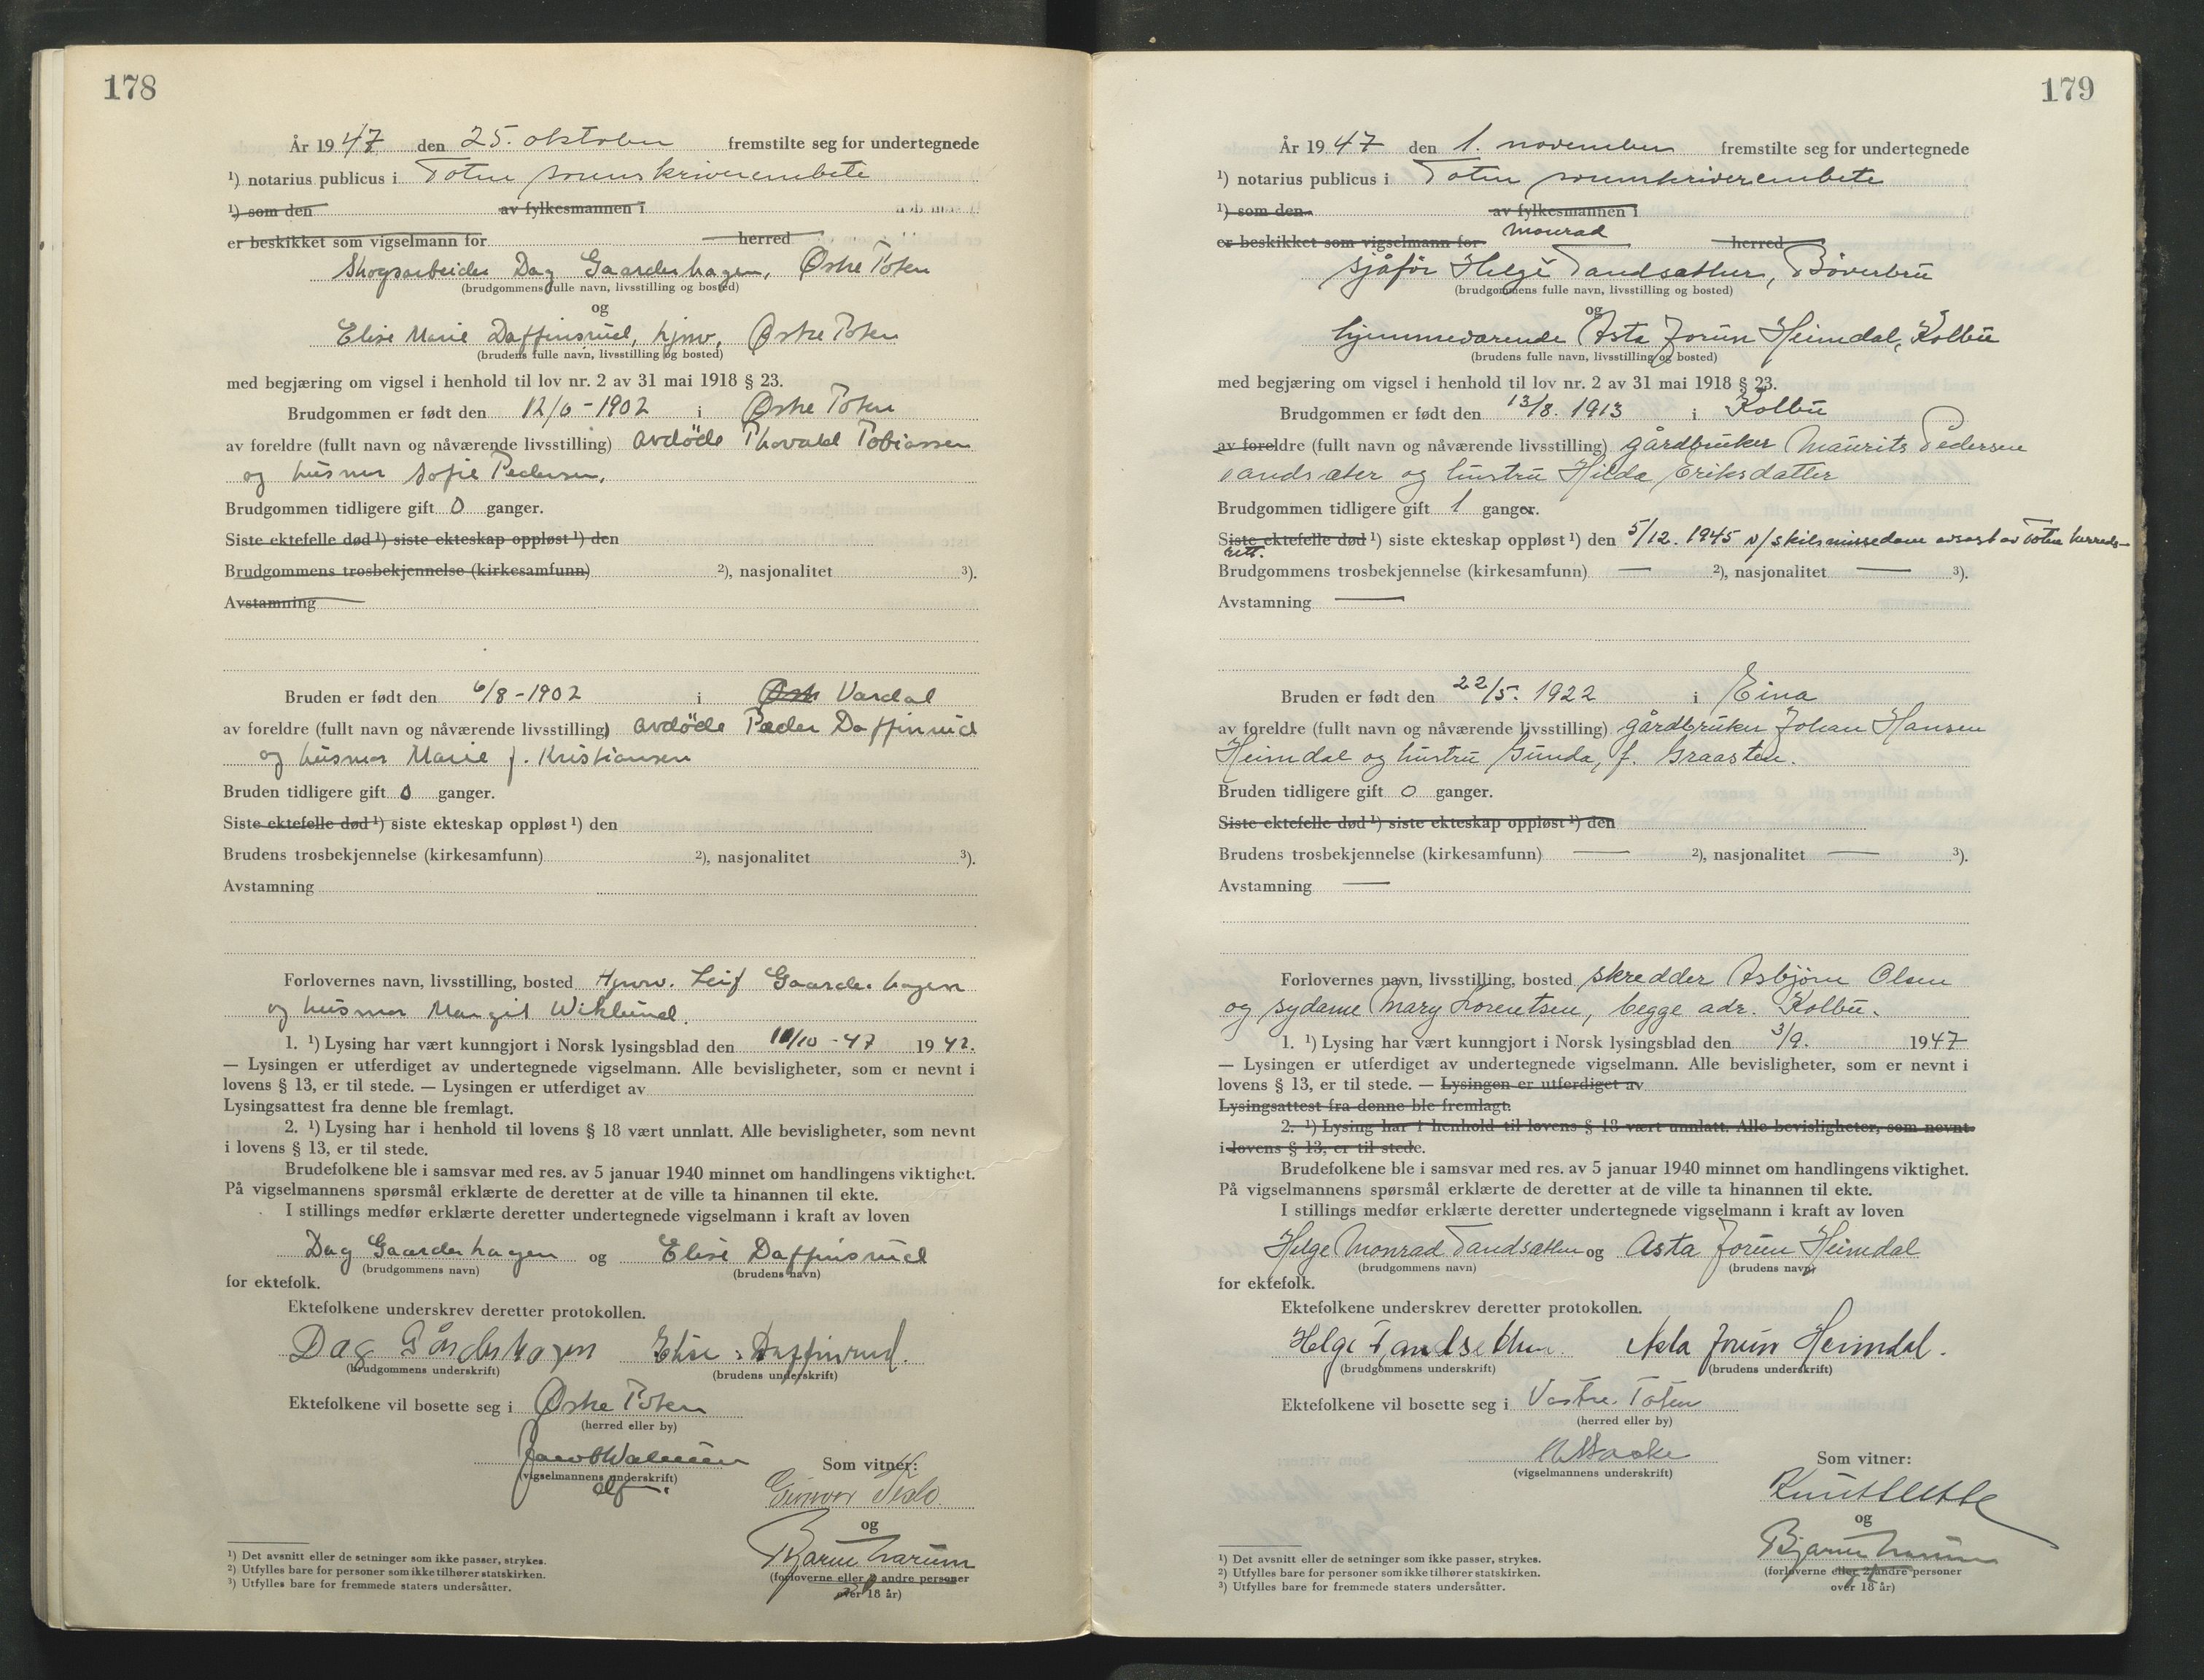 178
År 1947 den 25. oktober fremstilte seg for undertegnede
¹) notarius publicus i Toten sorenskriverembete
¹) som den av fylkesmannen i
er beskikket som vigselmann for herred
Skogsarbeider Dag Gaarderhagen, Østre Toten
(brudgommens fulle navn, livsstilling og bosted)
og
Elise Marie Daffinsrud, hjmv, Østre Toten
(brudens fulle navn, livsstilling og bosted)
med begjæring om vigsel i henhold til lov nr. 2 av 31 mai 1918 § 23.
Brudgommen er født den 12/6-1902 i Østre Toten
av foreldre (fullt navn og nåværende livsstilling) avdöde Thorvald Tobiassen
og husmor Sofie Pedersen.
Brudgommen tidligere gift 0 ganger.
Siste ektefelle død ¹) siste ekteskap oppløst ¹) den
Brudgommens trosbekjennelse (kirkesamfunn) ²), nasjonalitet ³).
Avstamning
Bruden er født den 6/8-1902 i Øst Vardal
av foreldre (fullt navn og nåværende livsstilling) avdöde Peder Daffinrud
og husmor Marie f. Kristiansen
Bruden tidligere gift 0 ganger.
Siste ektefelle død ¹) siste ekteskap oppløst ¹) den
Brudens trosbekjennelse (kirkesamfunn) ²), nasjonalitet ³).
Avstamning
Forlovernes navn, livsstilling, bosted Hjmv. Leif Gaarderhagen
og husmor Margit Wiklund.
1. ¹) Lysing har vært kunngjort i Norsk lysingsblad den 11/10-47 1947.
— Lysingen er utferdiget av undertegnede vigselmann. Alle bevisligheter, som er nevnt i
lovens § 13, er til stede. — Lysingen er utferdiget av
Lysingsattest fra denne ble fremlagt.
2. ¹) Lysing har i henhold til lovens § 18 vært unnlatt. Alle bevisligheter, som nevnt
i lovens § 13, er til stede.
Brudefolkene ble i samsvar med res. av 5 januar 1940 minnet om handlingens viktighet.
På vigselmannens spørsmål erklærte de deretter at de ville ta hinannen til ekte.
I stillings medfør erklærte deretter undertegnede vigselmann i kraft av loven
Dag Gaarderhagen og Elise Daffinsrud
(brudgommens navn) (brudens navn)
for ektefolk.
Ektefolkene underskrev deretter protokollen.
Dag Gårderhagen Elise Daffinrud.
(brudgommens underskrift) (brudens underskrift)
Ektefolkene vil bosette seg i Østre Toten
(herred eller by)
(vigselmannens underskrift)
Som vitner:
og
Bjarne
(forloverne eller 2 andre personer
over 18 år)
¹) Det avsnitt eller de setninger som ikke passer, strykes.
²) Utfylles bare for personer som ikke tilhører statskirken.
³) Utfylles bare for fremmede staters undersåtter.
179
År 1947 den 1. november fremstilte seg for undertegnede
¹) notarius publicus i Toten sorenskriverembete
¹) som den av fylkesmannen i
er beskikket som vigselmann for herred
Monrad
sjåför Helge Tandsæther, Böverbru
(brudgommens fulle navn, livsstilling og bosted)
og
hjemmeværende Asta Jorun Heimdal, Kolbu
(brudens fulle navn, livsstilling og bosted)
med begjæring om vigsel i henhold til lov nr. 2 av 31 mai 1918 § 23.
Brudgommen er født den 13/8. 1913 i Kolbu
av foreldre (fullt navn og nåværende livsstilling) gårdbruker Maurits Pedersen
Tandsæter og hustru Hilda Eriksdatter
Brudgommen tidligere gift 1 ganger.
Siste ektefelle død ¹) siste ekteskap oppløst ¹) den 5/12. 1945 v/skilsmissedom avsagt av Toten herreds-
rett.
Brudgommens trosbekjennelse (kirkesamfunn) — ²), nasjonalitet — ³).
Avstamning —
Bruden er født den 22/5. 1922 i Eina
av foreldre (fullt navn og nåværende livsstilling) gårdbruker Johan Hansen
Heimdal og hustru Gunda, f. Graasten.
Bruden tidligere gift 0 ganger.
Siste ektefelle død ¹) siste ekteskap oppløst ¹) den
Brudens trosbekjennelse (kirkesamfunn) — ²), nasjonalitet — ³).
Avstamning —
Forlovernes navn, livsstilling, bosted skredder Asbjörn Olsen
og sydame Mary Lorentsen, begge adr. Kolbu.
1. ¹) Lysing har vært kunngjort i Norsk lysingsblad den 3/9. 1947
— Lysingen er utferdiget av undertegnede vigselmann. Alle bevisligheter, som er nevnt i
lovens § 13, er til stede. — Lysingen er utferdiget av
Lysingsattest fra denne ble fremlagt.
2. ¹) Lysing har i henhold til lovens § 18 vært unnlatt. Alle bevisligheter, som nevnt
i lovens § 13, er til stede.
Brudefolkene ble i samsvar med res. av 5 januar 1940 minnet om handlingens viktighet.
På vigselmannens spørsmål erklærte de deretter at de ville ta hinannen til ekte.
I stillings medfør erklærte deretter undertegnede vigselmann i kraft av loven
Helge Monrad Tandsæther og Asta Jorun Heimdal
(brudgommens navn) (brudens navn)
for ektefolk.
Ektefolkene underskrev deretter protokollen.
Helge Tandsether. Asta Jorun Heimdal.
(brudgommens underskrift) (brudens underskrift)
Ektefolkene vil bosette seg i Vestre Toten
(herred eller by)
(vigselmannens underskrift)
Som vitner:
og
Bjarne
(forloverne eller 2 andre personer
over 18 år)
¹) Det avsnitt eller de setninger som ikke passer, strykes.
²) Utfylles bare for personer som ikke tilhører statskirken.
³) Utfylles bare for fremmede staters undersåtter.